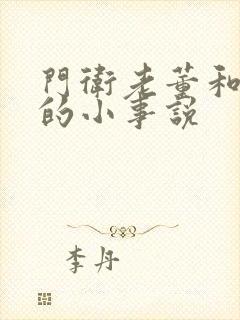 門衛老董和
的小事説
李丹